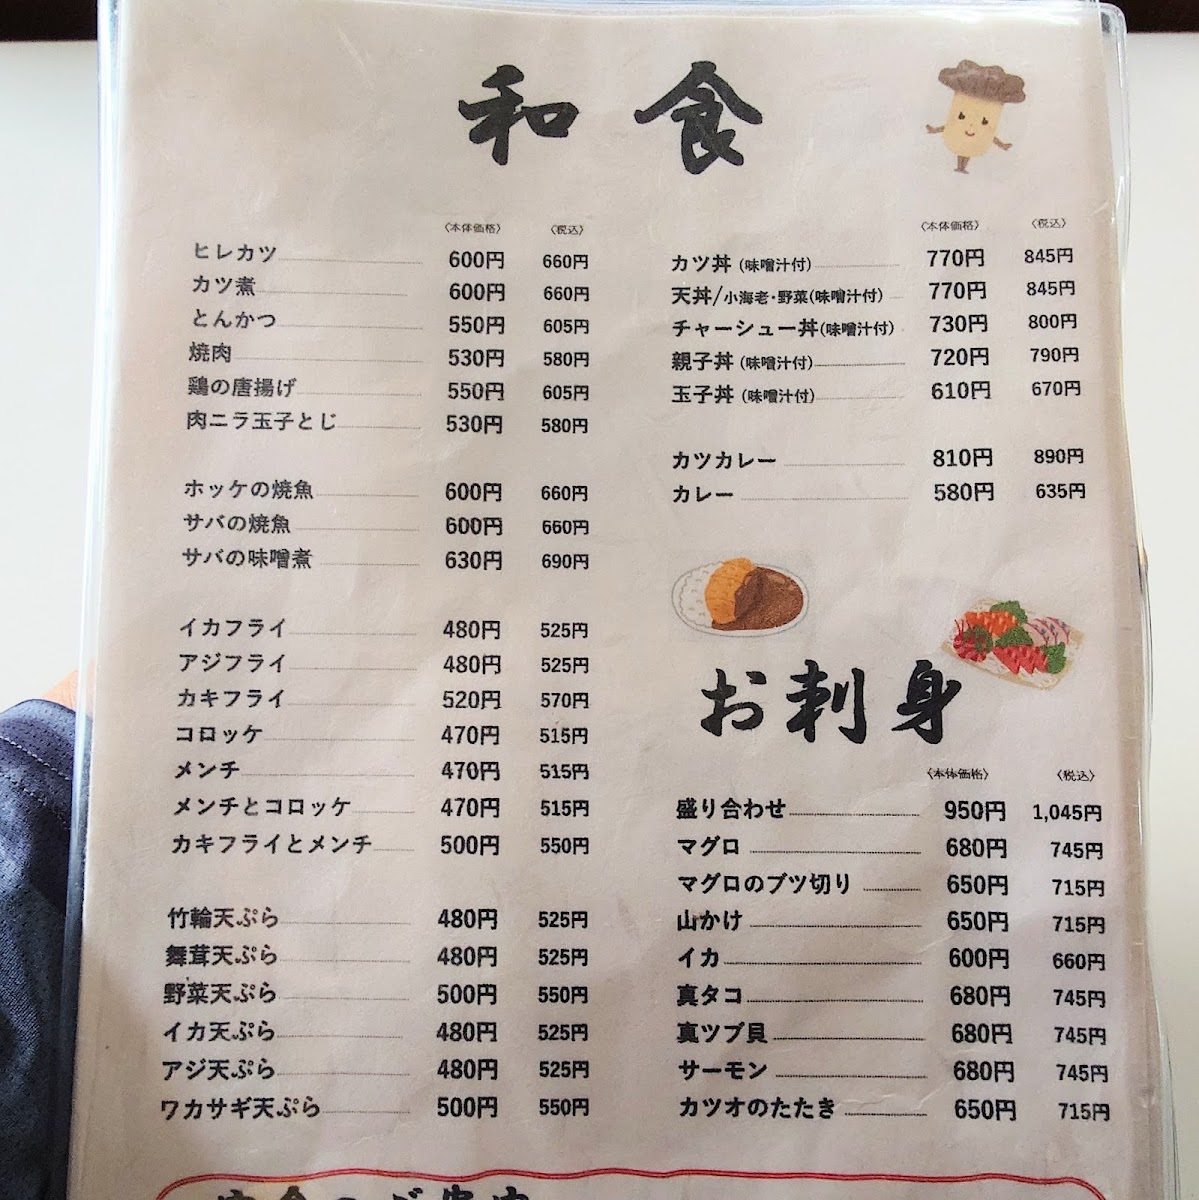 和食
〈本体価格〉 〈税込〉
ヒレカツ 600円 660円
カツ煮 600円 660円
とんかつ 550円 605円
焼肉 530円 580円
鶏の唐揚げ 550円 605円
肉ニラ玉子とじ 530円 580円
ホッケの焼魚 600円 660円
サバの焼魚 600円 660円
サバの味噌煮 630円 690円
イカフライ 480円 525円
アジフライ 480円 525円
カキフライ 520円 570円
コロッケ 470円 515円
メンチ 470円 515円
メンチとコロッケ 470円 515円
カキフライとメンチ 500円 550円
竹輪天ぷら 480円 525円
舞茸天ぷら 480円 525円
野菜天ぷら 500円 550円
イカ天ぷら 480円 525円
アジ天ぷら 480円 525円
ワカサギ天ぷら 500円 550円
〈本体価格〉 〈税込〉
カツ丼 (味噌汁付) 770円 845円
天丼/小海老・野菜(味噌汁付) 770円 845円
チャーシュー丼(味噌汁付) 730円 800円
親子丼 (味噌汁付) 720円 790円
玉子丼 (味噌汁付) 610円 670円
カツカレー 810円 890円
カレー 580円 635円
お刺身
〈本体価格〉 〈税込〉
盛り合わせ 950円 1,045円
マグロ 680円 745円
マグロのブツ切り 650円 715円
山かけ 650円 715円
イカ 600円 660円
真タコ 680円 745円
真ツブ貝 680円 745円
サーモン 680円 745円
カツオのたたき 650円 715円